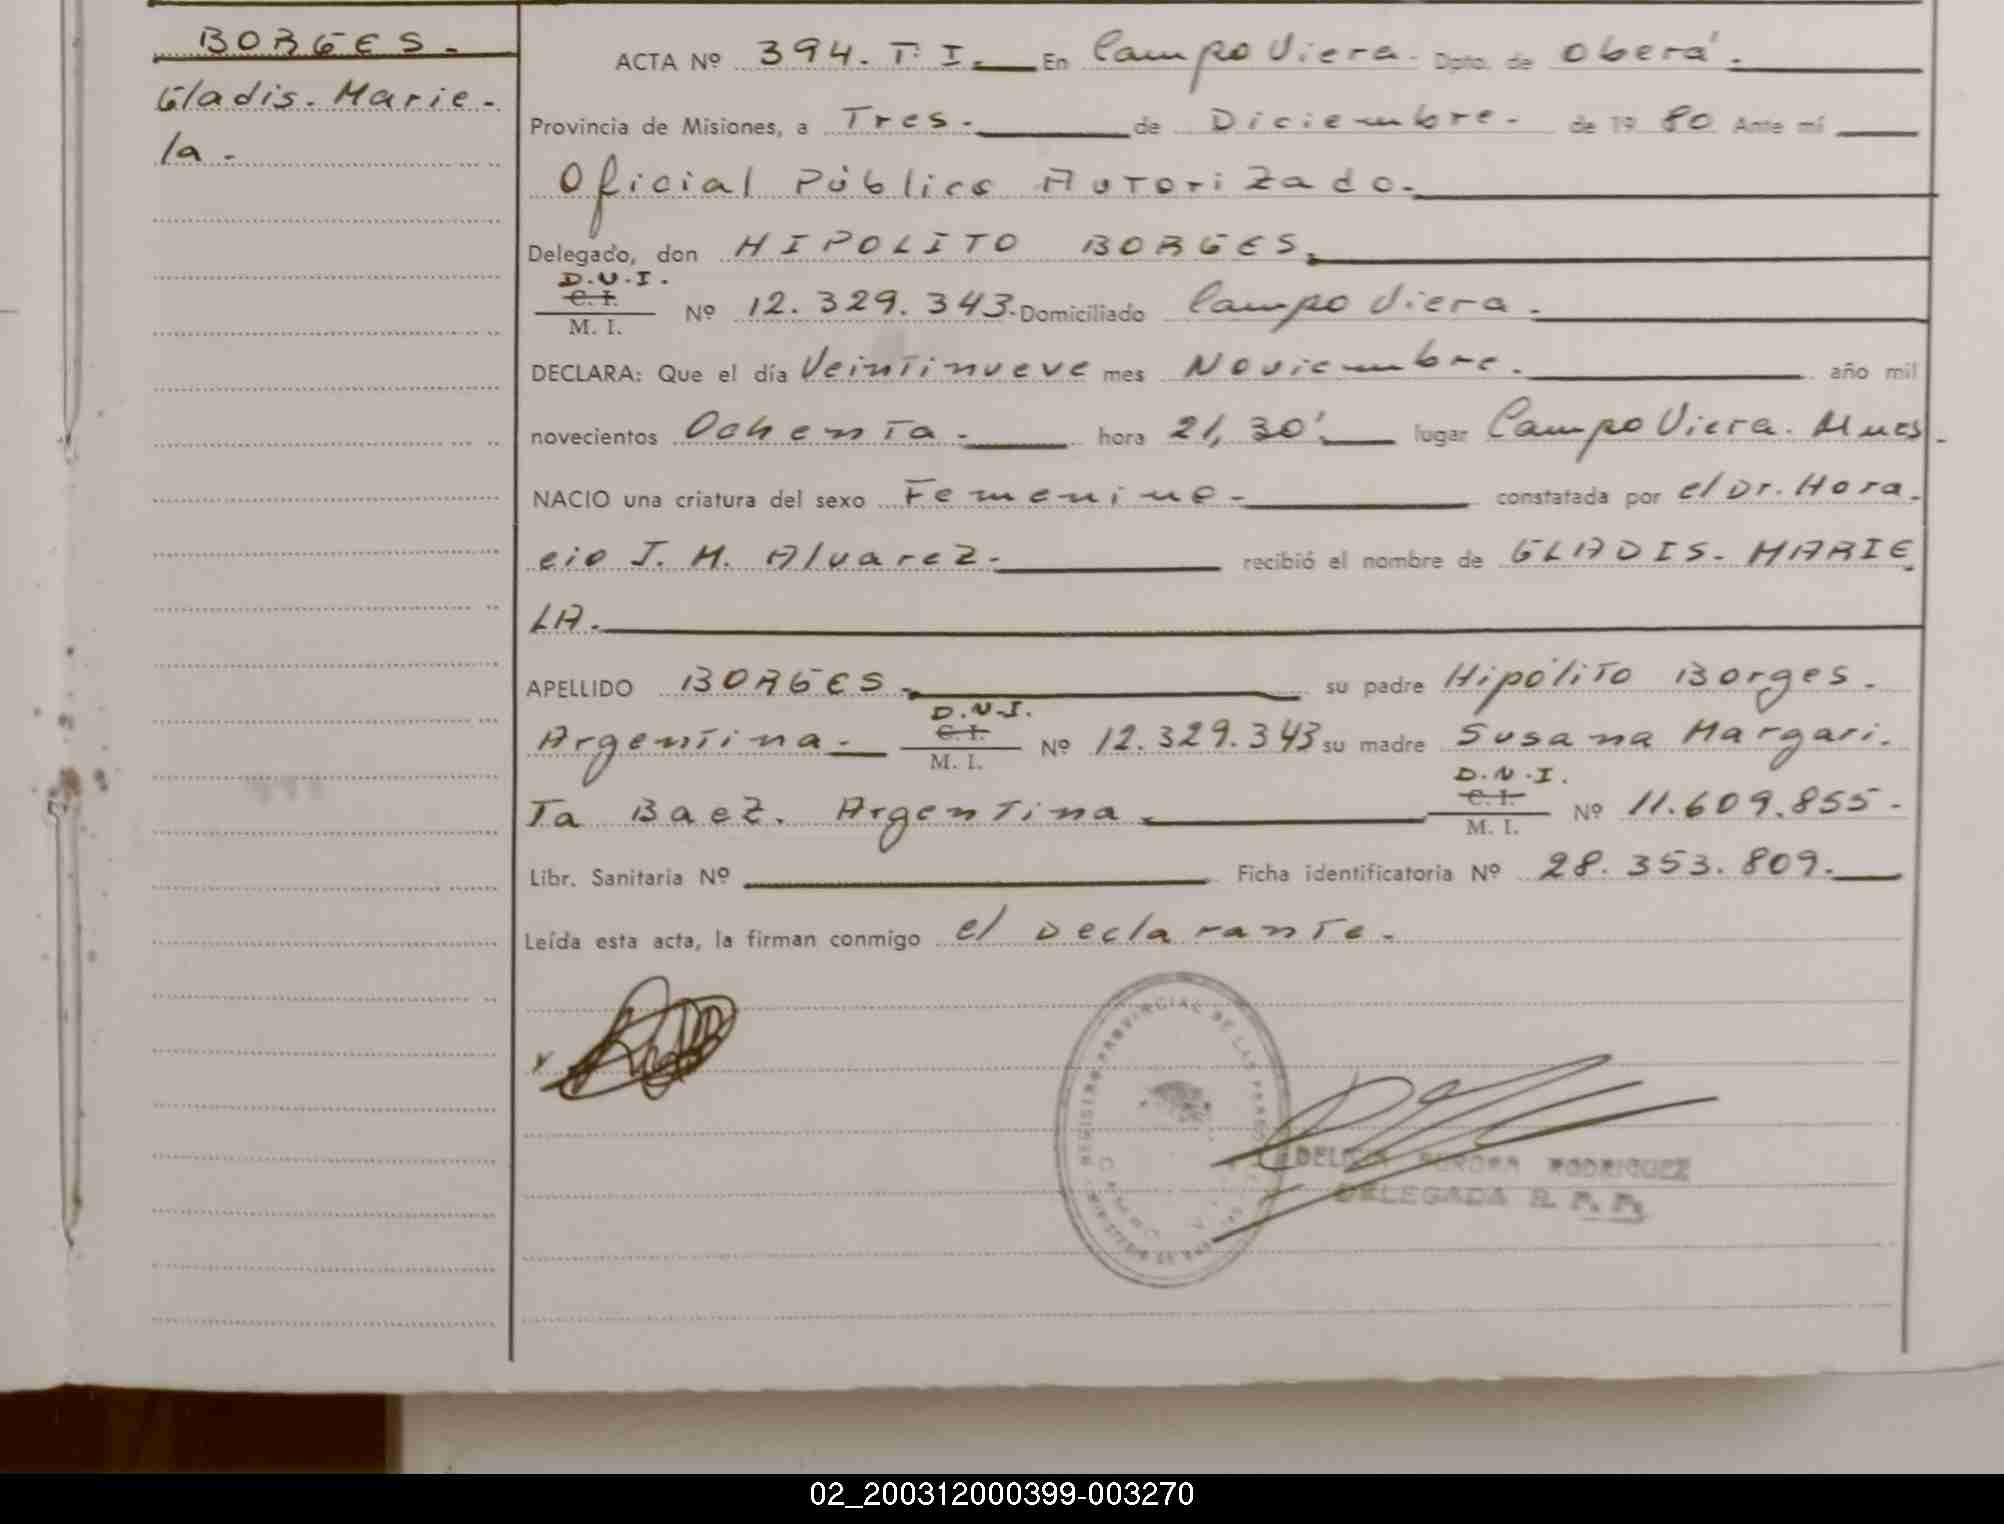 BORGES.
Gladis. Marie-
la.
ACTA Nº 394. T. I. En Campo Viera. Dpto. de Oberá.
Provincia de Misiones, a Tres. de Diciembre. de 19 80 Ante mí
Oficial Público Autorizado.
Delegado, don HIPOLITO BORGES.
D.N.I.
C. I.
M. I. Nº 12.329.343. Domiciliado Campo Viera.
DECLARA: Que el día Veintinueve mes Noviembre. año mil
novecientos Ochenta. hora 21,30' lugar Campo Viera. Mnes.
NACIO una criatura del sexo Femenino. constatada por el Dr. Hora-
cio J. M. Alvarez. recibió el nombre de GLADIS. MARIE
LA.
APELLIDO BORGES. su padre Hipólito Borges.
D.N.I.
Argentina. C. I. Nº 12.329.343 su madre Susana Margari-
M. I.
D.N.I.
ta Baez. Argentina. C. I. Nº 11.609.855.
M. I.
Libr. Sanitaria Nº Ficha identificatoria Nº 28.353.809.
Leída esta acta, la firman conmigo el Declarante.
REGISTRO PROVINCIAL DE LAS PERSO
RODRIGUEZ
DELEGADA R. P. P.
02_200312000399-003270